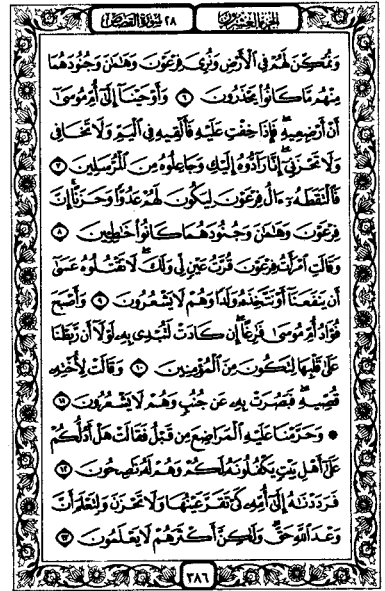 الجزء العشرون ٢٨ سورة القصص
وَنُمَكِّنَ لَهُمْ فِي الْأَرْضِ وَنُرِيَ فِرْعَوْنَ وَهَامَانَ وَجُنُودَهُمَا
مِنْهُم مَّا كَانُوا يَحْذَرُونَ ٦ وَأَوْحَيْنَا إِلَىٰ أُمِّ مُوسَىٰ
أَنْ أَرْضِعِيهِ فَإِذَا خِفْتِ عَلَيْهِ فَأَلْقِيهِ فِي الْيَمِّ وَلَا تَخَافِي
وَلَا تَحْزَنِي إِنَّا رَادُّوهُ إِلَيْكِ وَجَاعِلُوهُ مِنَ الْمُرْسَلِينَ ٧
فَالْتَقَطَهُ آلُ فِرْعَوْنَ لِيَكُونَ لَهُمْ عَدُوًّا وَحَزَنًا إِنَّ
فِرْعَوْنَ وَهَامَانَ وَجُنُودَهُمَا كَانُوا خَاطِئِينَ ٨
وَقَالَتِ امْرَأَتُ فِرْعَوْنَ قُرَّتُ عَيْنٍ لِّي وَلَكَ لَا تَقْتُلُوهُ عَسَىٰ
أَن يَنفَعَنَا أَوْ نَتَّخِذَهُ وَلَدًا وَهُمْ لَا يَشْعُرُونَ ٩ وَأَصْبَحَ
فُؤَادُ أُمِّ مُوسَىٰ فَارِغًا إِن كَادَتْ لَتُبْدِي بِهِ لَوْلَا أَن رَّبَطْنَا
عَلَىٰ قَلْبِهَا لِتَكُونَ مِنَ الْمُؤْمِنِينَ ١٠ وَقَالَتْ لِأُخْتِهِ
قُصِّيهِ فَبَصُرَتْ بِهِ عَن جُنُبٍ وَهُمْ لَا يَشْعُرُونَ ١١
۞ وَحَرَّمْنَا عَلَيْهِ الْمَرَاضِعَ مِن قَبْلُ فَقَالَتْ هَلْ أَدُلُّكُمْ
عَلَىٰ أَهْلِ بَيْتٍ يَكْفُلُونَهُ لَكُمْ وَهُمْ لَهُ نَاصِحُونَ ١٢
فَرَدَدْنَاهُ إِلَىٰ أُمِّهِ كَيْ تَقَرَّ عَيْنُهَا وَلَا تَحْزَنَ وَلِتَعْلَمَ أَنَّ
وَعْدَ اللَّهِ حَقٌّ وَلَٰكِنَّ أَكْثَرَهُمْ لَا يَعْلَمُونَ ١٣
٣٨٦